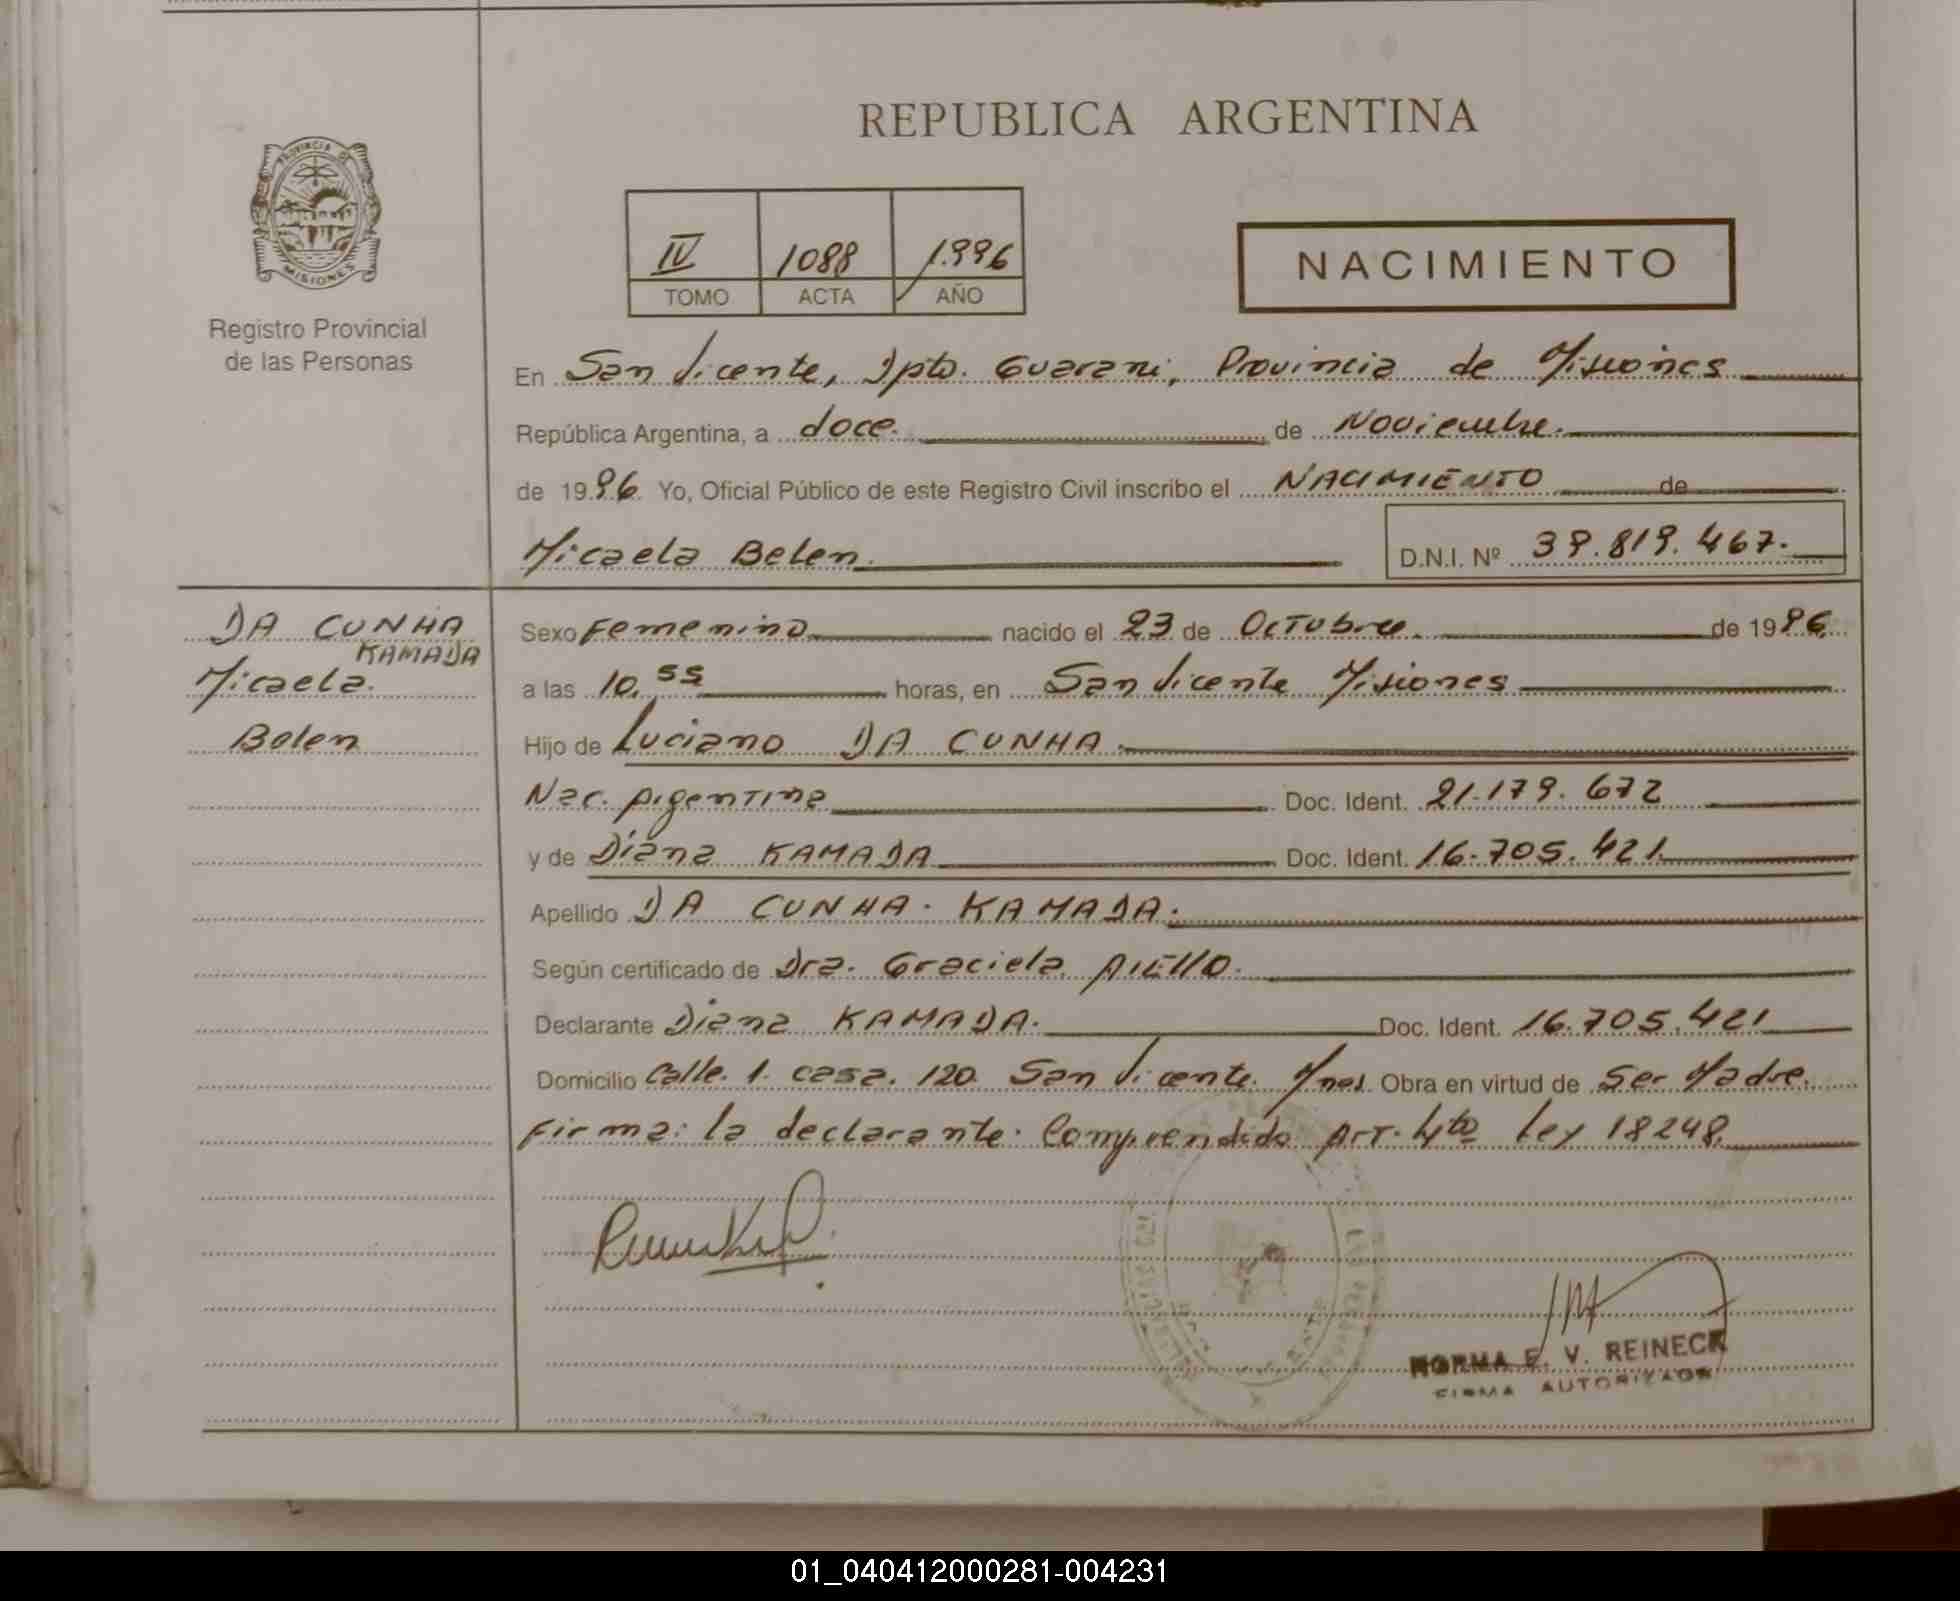 REPUBLICA ARGENTINA
PROVINCIA DE
MISIONES
Registro Provincial
de las Personas
IV 1088 1.996
TOMO ACTA AÑO
NACIMIENTO
En San Vicente, Dpto. Guarani, Provincia de Misiones
República Argentina, a doce. de Noviembre.
de 19.96. Yo, Oficial Público de este Registro Civil inscribo el NACIMIENTO de
Micaela Belen. D.N.I. Nº 39.819.467.
DA CUNHA
KAMADA
Micaela.
Belen
Sexo Femenino nacido el 23 de Octubre. de 1996.
a las 10,55 horas, en San Vicente Misiones
Hijo de Luciano DA CUNHA.
Nac. Argentina Doc. Ident. 21.179.672
y de Diana KAMADA Doc. Ident. 16.705.421.
Apellido DA CUNHA. KAMADA.
Según certificado de Dra. Graciela
Declarante Diana KAMADA. Doc. Ident. 16.705.421
Domicilio Calle. 1. casa. 120. San Vicente. Mnes. Obra en virtud de Ser Madre.
Firma: la declarante. Comprendido Art. 4to Ley 18248.
NORMA E. V. REINECK
FIRMA AUTORIZADA
01_040412000281-004231